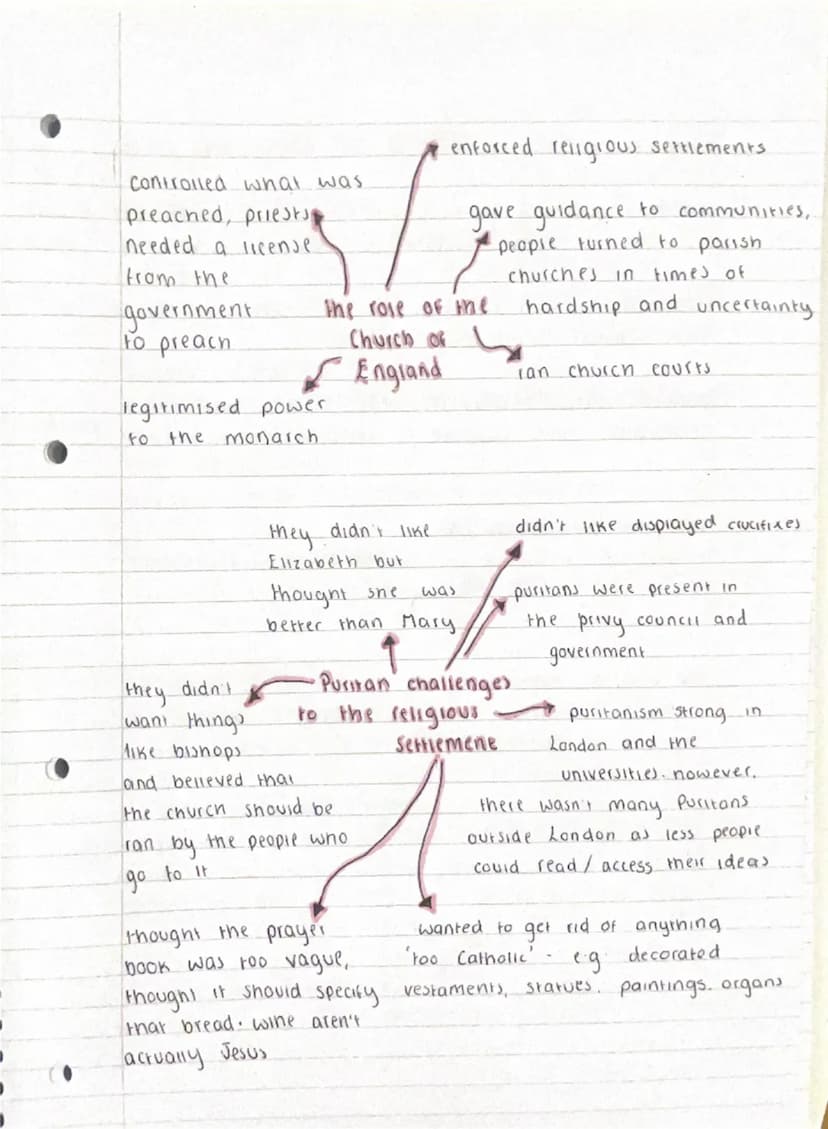 enforced religious settlements
controlled what was
preached, priests
needed a license
from the
government
to preach
gave guidance to communities,
people turned to parish
churches in times of
hardship and uncertainty
the role of the
Church of
England
ran church courts
legitimised power
to the monarch
they didn't like
Elizabeth but
thought she was
better than Mary
didn't like displayed crucifixes
puritans were present in
the privy council and
government
Puritan challenges
to the religious
settlement
they didn't
want things
like bishops
and believed that
the church should be
ran by the people who
go to it
puritanism strong in
London and the
universities. however,
there wasn't many Puritans
outside London as less people
could read / access their ideas
thought the prayer
book was too vague,
thought it should specify
that bread. wine aren't
actually Jesus
wanted to get rid of anything
'too Catholic' - e.g. decorated
vestaments, statues. paintings. organs